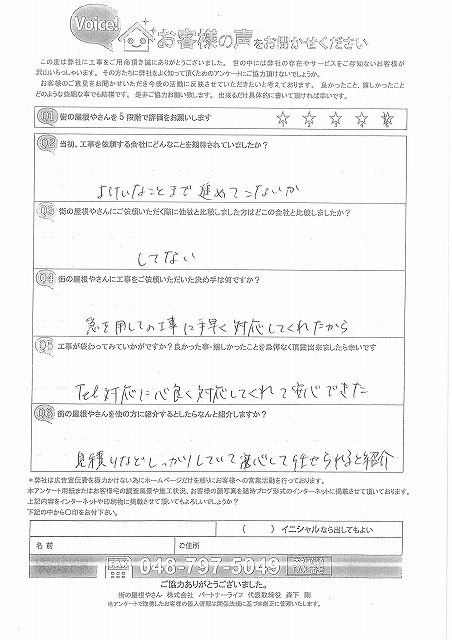 Voice!
お客様の声をお聞かせください
この度は弊社に工事をご用命頂き誠にありがとうございました。 世の中には弊社の存在やサービスをご存知ないお客様が
沢山いらっしゃいます。 その方たちに弊社をよく知って頂くためのアンケートにご協力頂けないでしょうか。
お客様のご意見をお聞かせいただき今後の活動に反映させていただきたいと考えております。 良かったこと、嬉しかったこと
どのような些細な事でも結構です。 是非ご協力お願い致します。 出来るだけ具体的に書いて頂ければ幸いです。
Q1 街の屋根やさんを5段階で評価をお願いします ☆ ☆ ☆ ☆ ☆
Q2 当初、工事を依頼する会社にどんなことを期待されていましたか？
よけいなことまで進めてこないか
Q3 街の屋根やさんにご依頼いただく際に他社と比較しました方はどこの会社と比較しましたか？
してない
Q4 街の屋根やさんに工事をご依頼いただいた決め手は何ですか？
急を用しての工事に手早く対応してくれたから
Q5 工事が終わってみていかがですか？良かった事・嬉しかったことを忌憚なく頂戴出来ましたら幸いです
Tel対応に心良く対応してくれて安心できた
Q6 街の屋根やさんを他の方に紹介するとしたらなんと紹介しますか？
見積りなどしっかりしていて安心して任せられると紹介
＊弊社は広告宣伝費を極力かけない為にホームページだけを頼りにお客様への営業活動を行っております。
本アンケート用紙またはお客様宅の調査風景や施工状況、お客様の顔写真を随時ブログ形式のインターネットに掲載させて頂いております。
上記内容をインターネットや印刷物に掲載させて頂いてもよろしいでしょうか？
下記の中から〇印をお付下さい。
（ ） イニシャルなら出してもよい
名 前
ご住所
048-797-5049
ご協力ありがとうございました。
街の屋根やさん 株式会社 パートナーライフ 代表取締役 森下 剛
※アンケートで取得したお客様の個人情報は関係法規に基づき厳正に管理いたします。